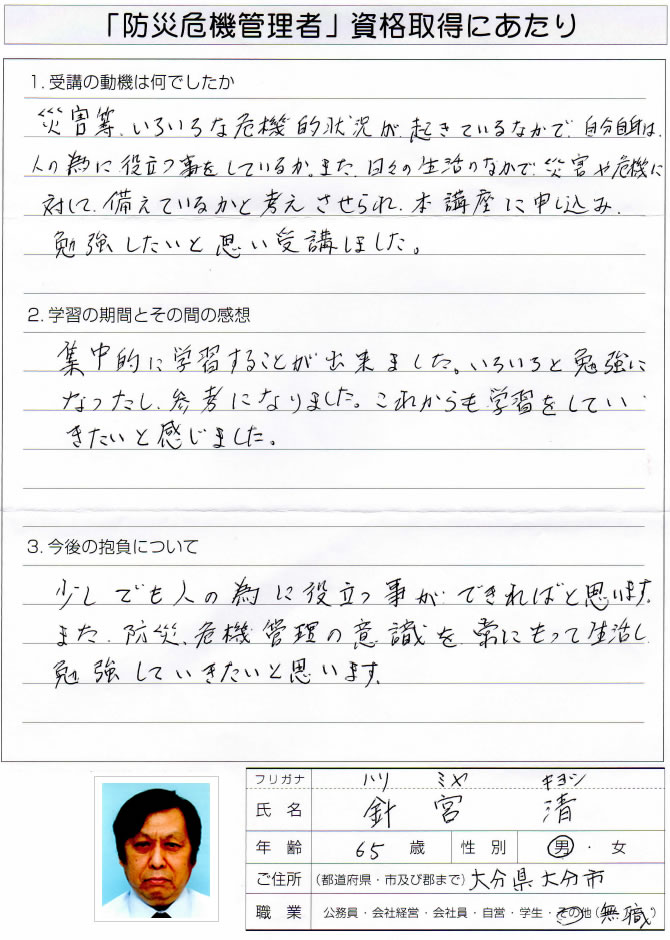 「防災危機管理者」資格取得にあたり
1. 受講の動機は何でしたか
災害等、いろいろな危機的状況が、起きているなかで、自分自身は、
人の為に役立つ事をしているか。また、日々の生活のなかで、災害や危機に
対して、備えているかと考えさせられ、本講座に申し込み、
勉強したいと思い受講しました。
2. 学習の期間とその間の感想
集中的に学習することが出来ました。いろいろと勉強に
なったし、参考になりました。これからも学習をしてい
きたいと感じました。
3. 今後の抱負について
少しでも人の為に役立つ事ができればと思います。
また、防災、危機管理の意識を、常にもって生活し、
勉強していきたいと思います。
フリガナ ハリ ミヤ キヨシ
氏名 針宮 清
年齢 65 歳 性別 男・女
ご住所 (都道府県・市及び郡まで) 大分県大分市
職業 公務員・会社経営・会社員・自営・学生・その他(無職)